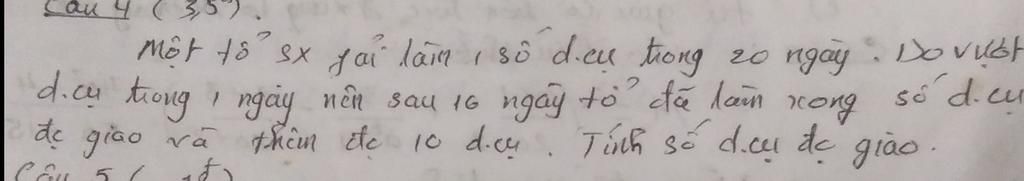 Câu 4 (3,5đ).
Một tổ sx fải làm 1 số d.cụ trong 20 ngày. Do vượt
d.cụ trong 1 ngày nên sau 16 ngày tổ đã làm xong số d.cụ
đc giao và thêm đc 10 d.cụ. Tính số d.cụ đc giao.
Câu 5 (